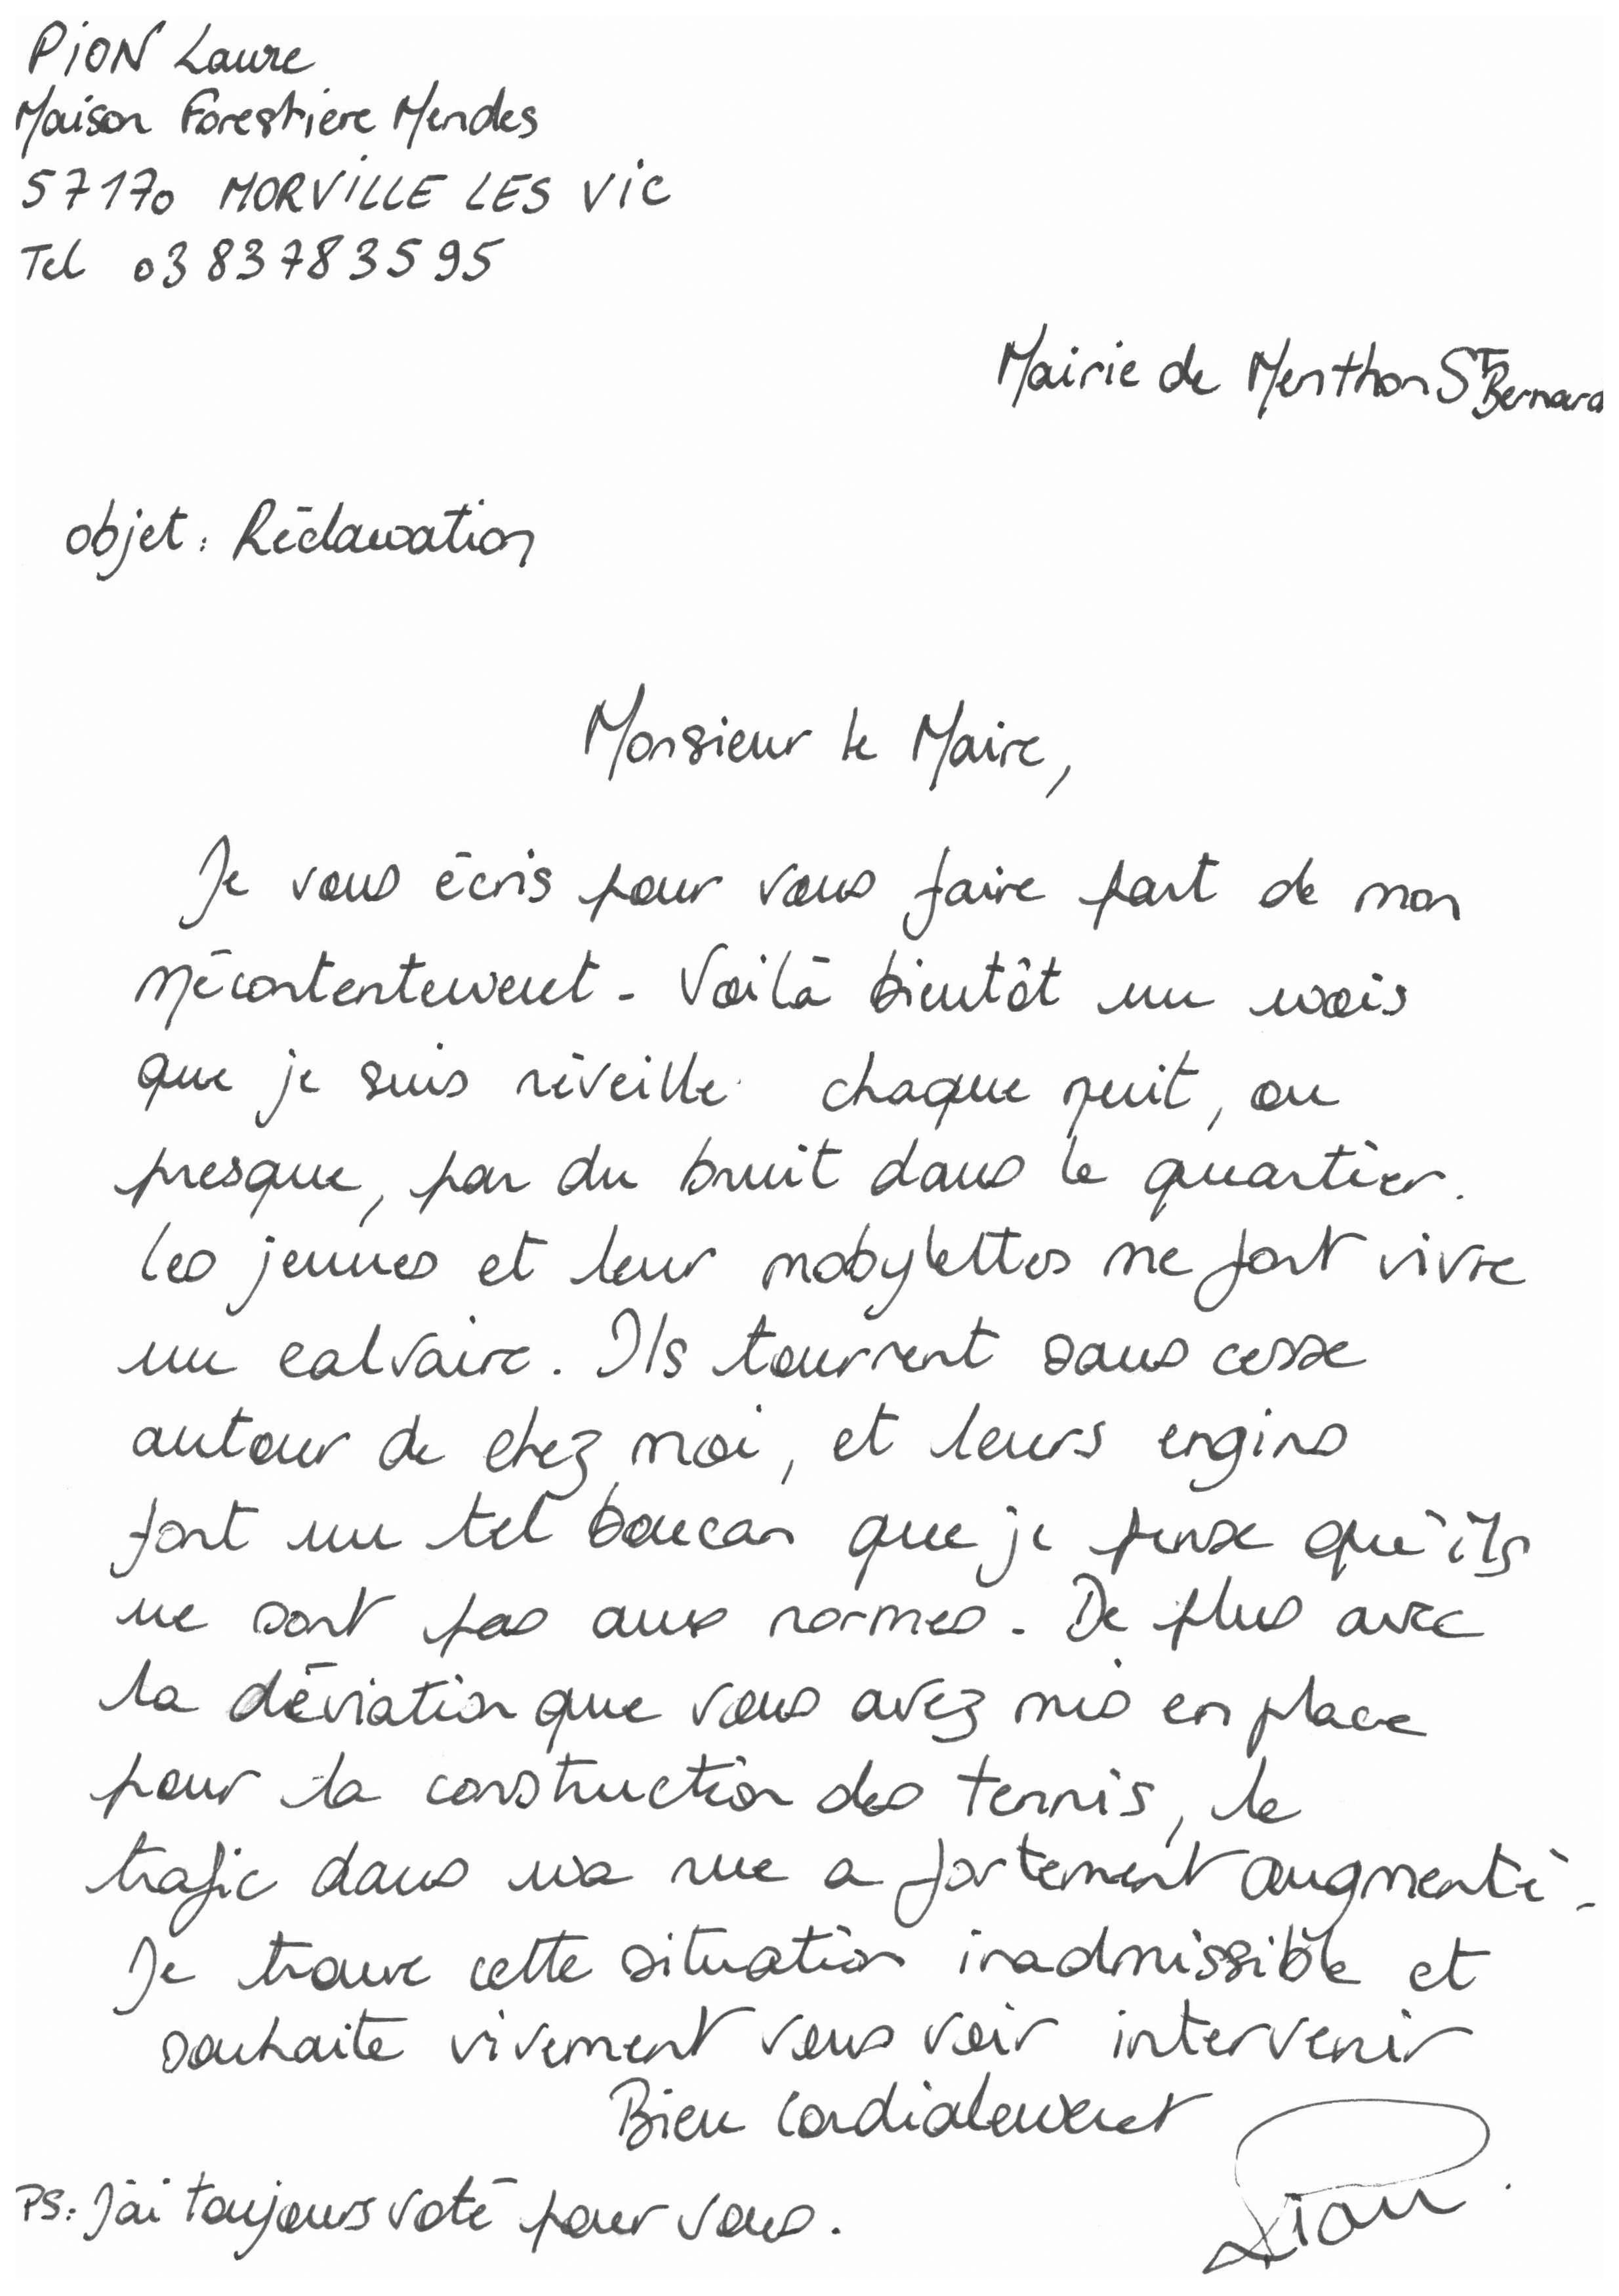 PiON Laure
Maison Forestière Mendes
57170 MORVILLE LES VIC
Tel 0383783595
Mairie de Menthon ST Bernard
objet : Réclamation
Monsieur le Maire,
Je vous écris pour vous faire part de mon
mécontentement - Voilà bientôt un mois
que je suis réveillé chaque nuit, ou
presque, par du bruit dans le quartier.
Les jeunes et leur mobylettes me font vivre
un calvaire. Ils tournent sans cesse
autour de chez moi, et leurs engins
font un tel boucan que je pense qu'ils
ne sont pas aux normes. De plus avec
la déviation que vous avez mis en place
pour la construction des tennis, le
trafic dans ma rue a fortement augmenté.
Je trouve cette situation inadmissible et
souhaite vivement vous voir intervenir
Bien Cordialement
PS: J'ai toujours voté pour vous.
Pion